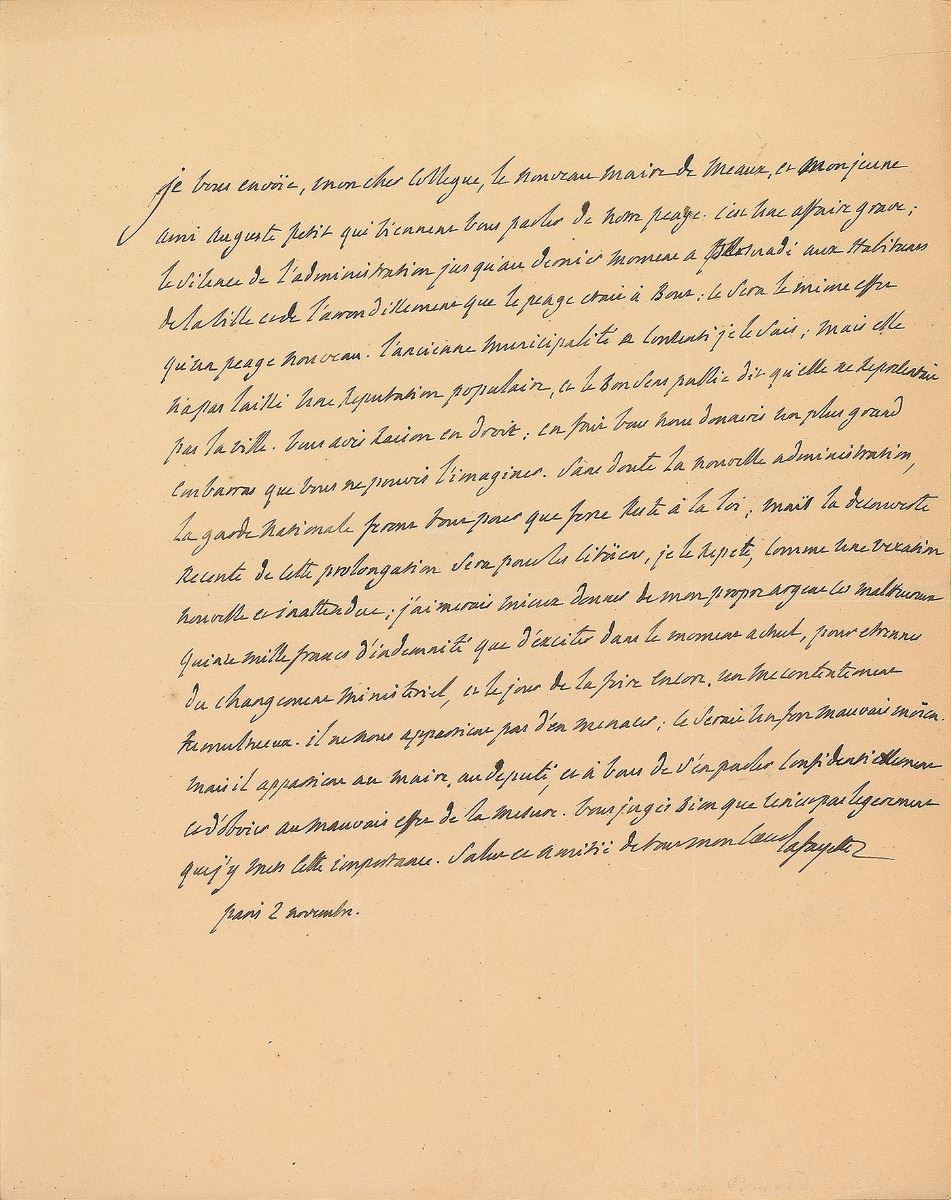 je vous envoïe, mon cher Collegue, le nouveau maire de meaux, et mon jeune
ami auguste petit qui viennent vous parler de notre peage. c'est une affaire grave;
le silence de l'administration jusqu'au dernier moment a persuadé aux habitans
de la ville et de l'arrondissement que le peage etait à Bout; ce sera le même effet
qu'un peage nouveau. l'ancienne municipalité a consenti je le sais; mais elle
n'a pas laissé une reputation populaire, et le Bon sens public dit qu'elle ne representait
pas la ville. vous avés raison en droit; en fait vous nous donneriés un plus grand
embarras que vous ne pouvés l'imaginer. sans doute la nouvelle administration,
la garde nationale feront tout pour que force reste à la loi; mais la decouverte
recente de cette prolongation sera pour les citoïens, je le repete, comme une vexation
nouvelle et inattendue; j'aimerais mieux donner de mon propre argent ces malheureux
quinze mille francs d'indemnité que d'exciter dans le moment actuel, pour etrennes
du changement ministeriel, et le jour de la foire encore, un mecontentement
tumultueux. il ne nous appartient pas d'en menacer; ce serait un fort mauvais moïen.
mais il appartient au maire, au deputé, et à vous de s'en parler confidentiellement
et d'obvier au mauvais effet de la mesure. vous jugés Bien que ce n'est pas legerement
que j'y mets cette importance. Salut et amitié de tout mon coeur Lafayette
paris 2 novembre.